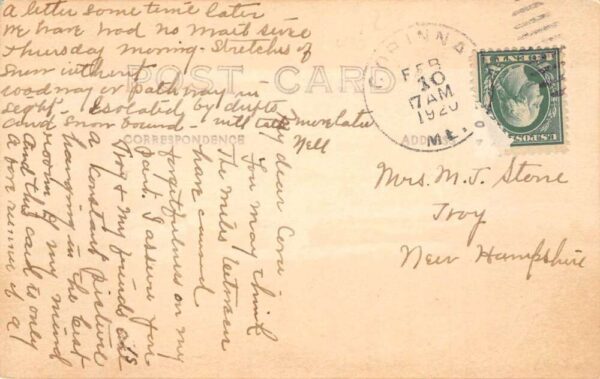 POST CARD
CORRESPONDENCE
ADDRESS
My dear Cora:
You may think
The miles between
have caused
forgetfulness on my
part. I assure you
Troy & my friends are
a constant picture
hanging in the best
room of my mind
And this card is only
a fore runner of a
a letter some time later
We have had no mail since
Thursday morning - Stretches of
Snow without
roadway or pathway in
sight - Isolated by drifts
and snow bound - will tell more later
Nell
CORINNA
FEB
10
7 AM
1920
ME.
U.S. POSTAGE
1 CENT 1
Mrs. M. J. Stone
Troy
New Hampshire